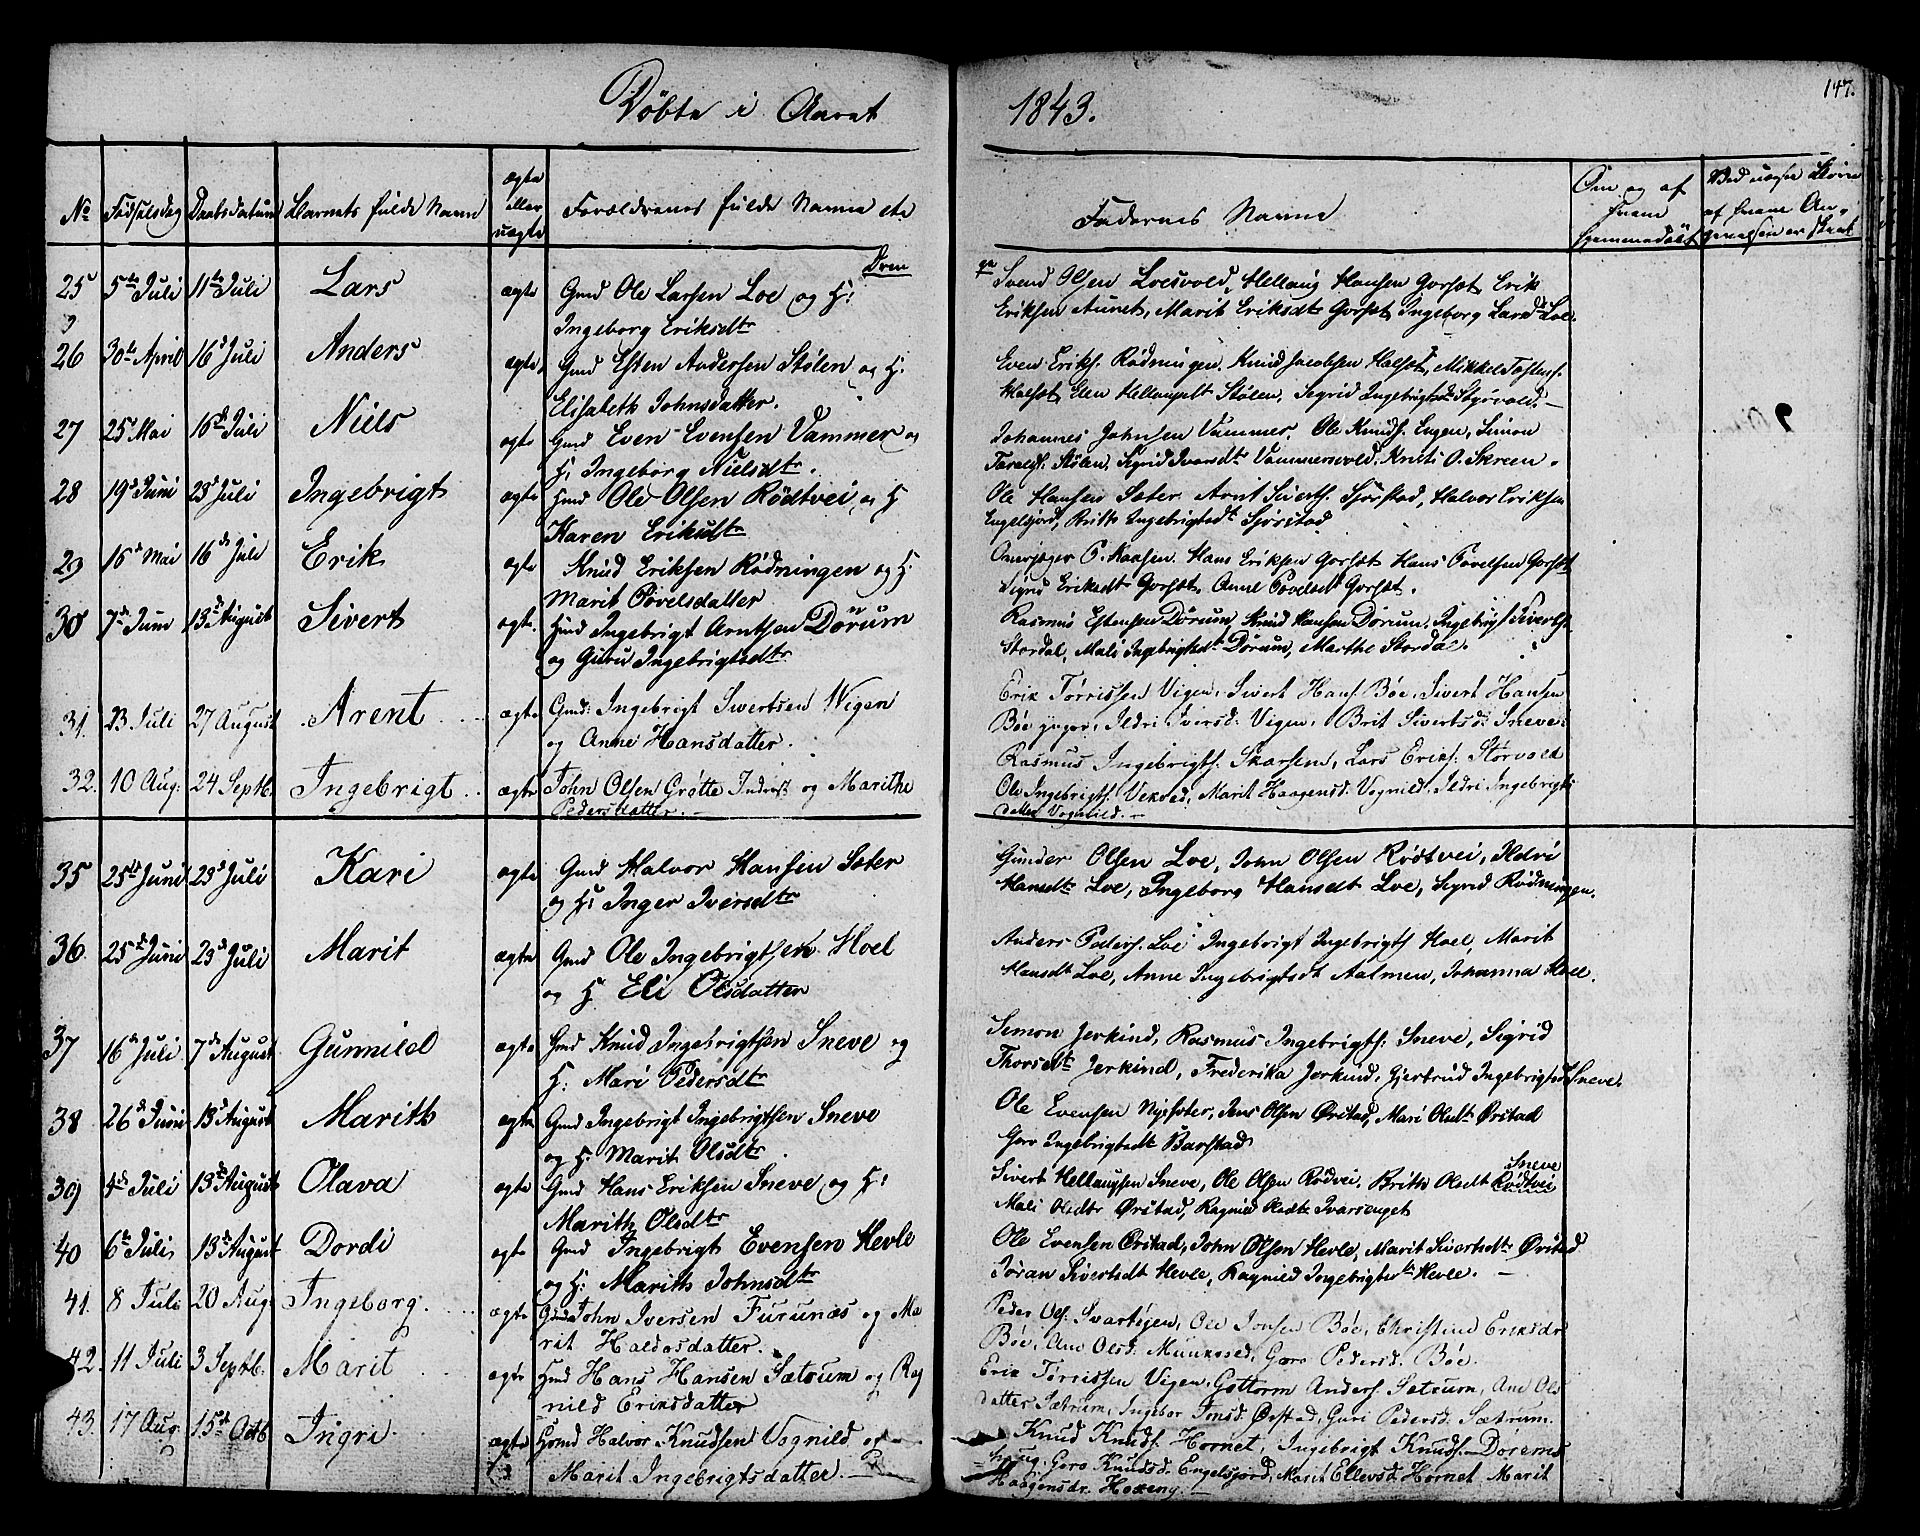 Døbte i Aaret
1843.
147.
No Fødselsdag Daabsdatum Barnets fulde Navn ægte eller uægte Forældrenes fulde Navne etc
Faddernes Navne
Om og af hvem hjemmedøbt
25 5te Juli 11te Juli Lars ægte Gmd Ole Larsen Loe og H:
Ingeborg Eriksdtr
Svend Olsen Loesvold, Hellaug Hansen Gorset, Erik
Eriksen Aunet, Marit Eriksdt Gorset, Ingeborg Larsdt Loe.
26 30te April 16d Juli Anders ægte Gmd Esten Andersen Stølen og H:
Elisabeth Johnsdatter.
Even Eriks. Rødningen, Knud Jacobsen Halset, Mikkel
Halset, Elen Stølen, Sigrid Ingebrigtsdt
27 25d Mai 16de Juli Niels ægte Gmd Even Evensen Vammer og
H: Ingeborg Nielsdtr.
Johannes Johnsen Vammer, Ole Knuds. Engen, Simon
Stølen, Sigrid Ivarsdt Vammervold, O. Skreen.
28 19d Juni 23d Juli Ingebrigt ægte Hmd Ole Olsen Rødtvei, og H
Karen Eriksdtr
Ole Hansen Sæter, Arnt Siverts. Sjørstad, Halvor Eriksen
Engelsjord, Brith Ingebrigtsdt Sjørstad
29 16d Mai 16de Juli Erik ægte Knud Eriksen Rødningen og H:
Marit Povelsdatter
P. Kaasen, Hans Eriksen Gorset, Hans Povelsen Gorset
Sigrid Eriksdt Gorset, Anne Povelsdt Gorset.
30 7de Juni 13de August Sivert ægte. Hmd Ingebrigt Arntsen Dørum
og Guru Ingebrigtsdtr
Rasmus Estensen Dørum, Knud Hansen Dørum, Ingebrigt Siverts.
Stordal, Mali Ingebrigtsdt Dørum, Marthe Stordal.
31. 23 Juli 27 August Arent ægte Gmd: Ingebrigt Sivertsen Vigen
og Anne Hansdatter.
Erik Tørrissen Vigen, Sivert Hans. Bøe, Sivert Hansen
Bøe Ildri Iversd: Vigen, Brit Sivertsd: Sneve
32. 10 Aug: 24 Septb. Ingebrigt ægte John Olsen Grøtte og Marithe
Pedersdatter.
Rasmus Ingebrigts. Skarsem, Lars Eriks: Storvold
Ole Ingebrigts. Veksed, Marit Haagensd: Vognild, Ildri Ingebrigts
datter Vognild.
35 25de Juni 23d Juli Kari ægte Gmd Halvor Hansen Sæter
og H: Inger Iversdtr
Gunder Olsen Loe, John Olsen Rødtvei, Ildri
Hansdtr Loe, Ingeborg Hansdt Loe, Sigrid Rødningen.
36. 25de Juni 23d Juli Marit ægte Gmd Ole Ingebrigtsen Hoel
og H. Eli Olsdatter
Anders Peders. Loe, Ingebrigt Ingebrigts Hoel, Marit
Hansdt Loe, Anne Ingebrigtsdt Aalmen, Johanna Hoel.
37 16de Juli. 7de August Gunnild ægte Hmd Knud Ingebrigtsen Sneve og
H: Mari Pedersdtr
Simon Jerkind, Rasmus Ingebrigts: Sneve, Sigrid
Thorsdtr Jerkind, Frederika Jerkind, Gjertrud Ingebrigtsdt Sneve.
38 26d Juni 13d August Marith ægte Gmd Ingebrigt Ingebrigtsen Sneve
og H: Marit Olsdtr.
Ole Evensen Nysæter, Jens Olsen Ørstad, Mari Olsdtr Ørstad
Goro Ingebrigtsdtr Barstad
39 4de Juli 13de August Olava ægte Gmd Hans Eriksen Sneve og H:
Marith Olsdtr
Sivert Hellaugsen Sneve, Ole Olsen Rødvei, Brith Olsdt Rødtvei Sneve
Mali Olsdtr Ørstad, Ragnild Olsdtr Ivarsenget
40 6te Juli, 13de August Dordi ægte Gmd Ingebrigt Evensen Hevle
og H: Marith Johnsdtr
Ole Evensen Ørstad, John Olsen Hevle, Marit Sivertsdtr Ørstad
Jøran Sivertsdt Hevle, Ragnild Ingebrigtsdt Hevle.
41. 8 Juli 20 Aug: Ingeborg. ægte Gmd John Iversen Furunæs og Ma
rit Haldosdatter.
Peder Ols: Svartøjen, Ole Jonsen Bøe, Christine Eriksdr
Bøe, Ane Olsd: Goro Pedersd. Bøe.
42. 11 Juli 3 Septb. Marit ægte Hmd Hans Hansen Sætrum og Rag
nild Eriksdatter
Erik Tørrissen Vigen, Gottorm Anders. Sætrum, Ane Ols
datter Sætrum, Ingebor Jonsd: Ørstad, Guri Pedersd. Sætrum.
43. 17 Aug 15de Octb. Ingri ægte Hmd Halvor Knudsen Vognild og
Marit Ingebrigtsdatter.
Knud Knuds. Hornet, Ingebrigt Knuds. Dørems
Goro Knudsd. Engelsjord, Marit Ellevsd. Hornet, Marit
Haagensdr. Hoxeng.